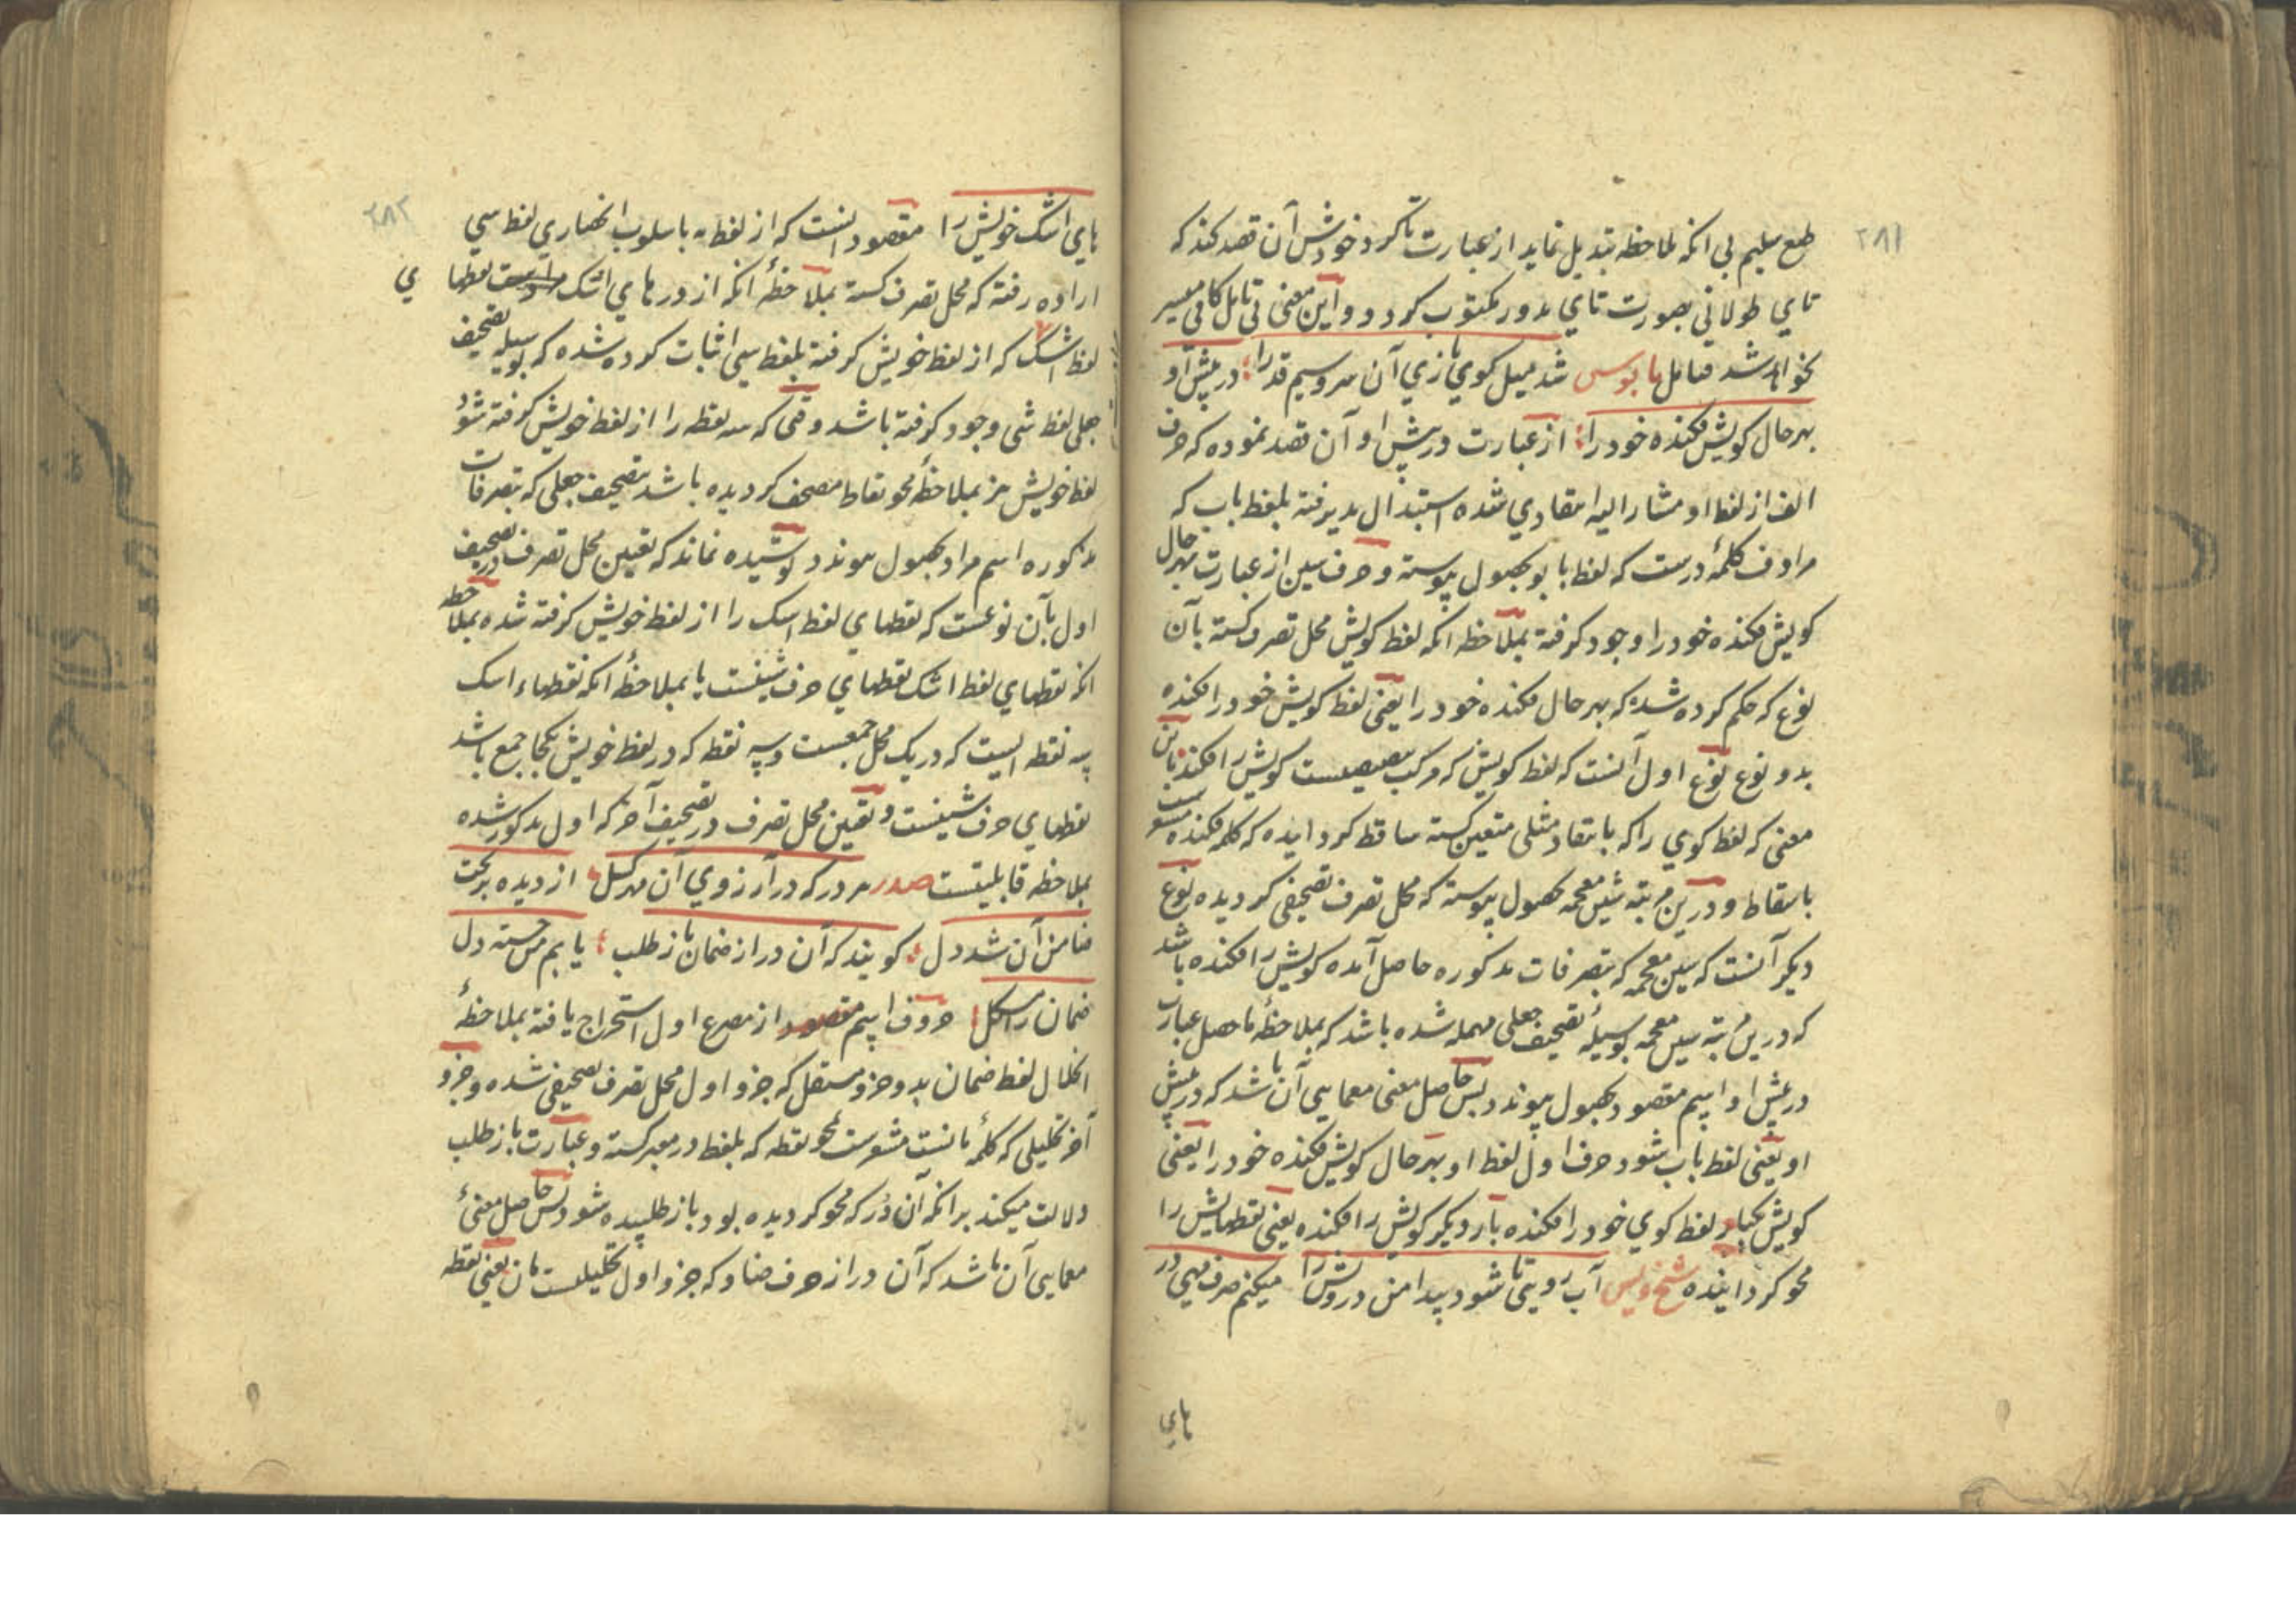 ۲۸۱
طبع سلیم بی انکه ملاحظه تبدیل نماید از عبارت تا کرد خودش آن قصد کند که
تای طولانی بصورت تای مدور مکتوب کردد و این معنی بی تامل کافی میسر
نخواهد شد فتامل بابوس شد میل کوی بازی آن سرو سیم قد را در پیش او
بهر حال کویش فکنده خود را از عبارت در پیش او آن قصد نموده که حرف
الف از لفظ او مشار الیه انتقادی شده استبدال پذیرفته بلفظ باب که
مرادف کلمهٔ درست که لفظ با بو بحصول پیوسته و حرف سین از عبارت بهر حال
کویش فکنده خود را وجود کرفته بملاحظه انکه لفظ کویش محل تصرف کشته بآن
نوع که حکم کرده شد که بهر حال فکنده خود را یعنی لفظ کویش خود را فکنده
بدو نوع نوع اول آنست که لفظ کویش که مرکب کویش را فکنده باین
معنی که لفظ کوی را که بانتقاد مثلی متعین کشته ساقط کردانیده که کلمه فکنده مشعر است
باسقاط و درین مرتبه شین معجمه بحصول پیوسته که محل تصرف تصحیفی کردیده نوع
دیکر آنست که شین معجمه که بتصرفات مذکوره حاصل آمده کویش را فکنده باشد
که درین مرتبه شین معجمه بوسیلهٔ تصحیف جعلی مهمله شده باشد که بملاحظهٔ ماحصل عبارت
در پیش او اسم مقصود بحصول پیوندد پس حاصل معنی معمایی آن باشد که در پیش
او یعنی لفظ باب شود حرف اول لفظ او بهر حال کویش فکنده خود را یعنی
کویش یکبار لفظ کوی خود را فکنده بار دیکر کویش را فکنده یعنی نقطهایش را
محو کردانیده شیخ ویس آب رویی تا شود پیدا من درویش را میکنم صرف مهی در
های
۲۸۲
های اشک خویش را مقصود آنست که از لفظ به باسلوب انحصاری لفظ سی
اراده رفته که محل تصرف کشته بملاحظهٔ انکه از درهای اشک نقطهای
لفظ اشک که از لفظ خویش کرفته بلفظ سی اثبات کرده شده که بوسیله تصحیف
جعلی لفظ شی وجود کرفته باشد وقتی که سه نقطه را از لفظ خویش کرفته شود
لفظ خویش نیز بملاحظهٔ محو نقاط مصحف کردیده باشد بتصحیف جعلی که بتصرفات
مذکوره اسم مراد بحصول پیوندد پوشیده نماند که تعین محل تصرف در تصحیف
اول بآن نوعست که نقطهای لفظ اشک را از لفظ خویش کرفته شده بملاحظه
انکه نقطهای لفظ اشک نقطهای حرف شینست یا بملاحظهٔ انکه نقطهاء اشک
سه نقطه ایست که در یک محل جمعست و سه نقطه که در لفظ خویش یکجا جمع باشد
نقطهای حرف شینست و تعین محل تصرف در تصحیف آخر که اول مذکور شده
بملاحظه قابلیتست صدر هر در که در آرزوی آن از دیده بریخت
ضامن آن شد دل کویند که آن در از ضمان باز طلب یابم من خسته دل
ضمان را حروف اسم مقصود از مصرع اول استخراج یافته بملاحظهٔ
انحلال لفظ ضمان بدو جزو مستقل که جزو اول محل تصرف تصحیفی شده و جزو
آخر تحلیلی که کلمهٔ مانست مشعرست بمحو نقطه که بلفظ در معبر کشته و عبارت باز طلب
دلالت میکند بر انکه آن دُر که محو کردیده بود باز طلبیده شود پس حاصل معنیٔ
معمایی آن باشد که آن در از حرف ضاد که جزو اول تحلیلست مان یعنی نقطه